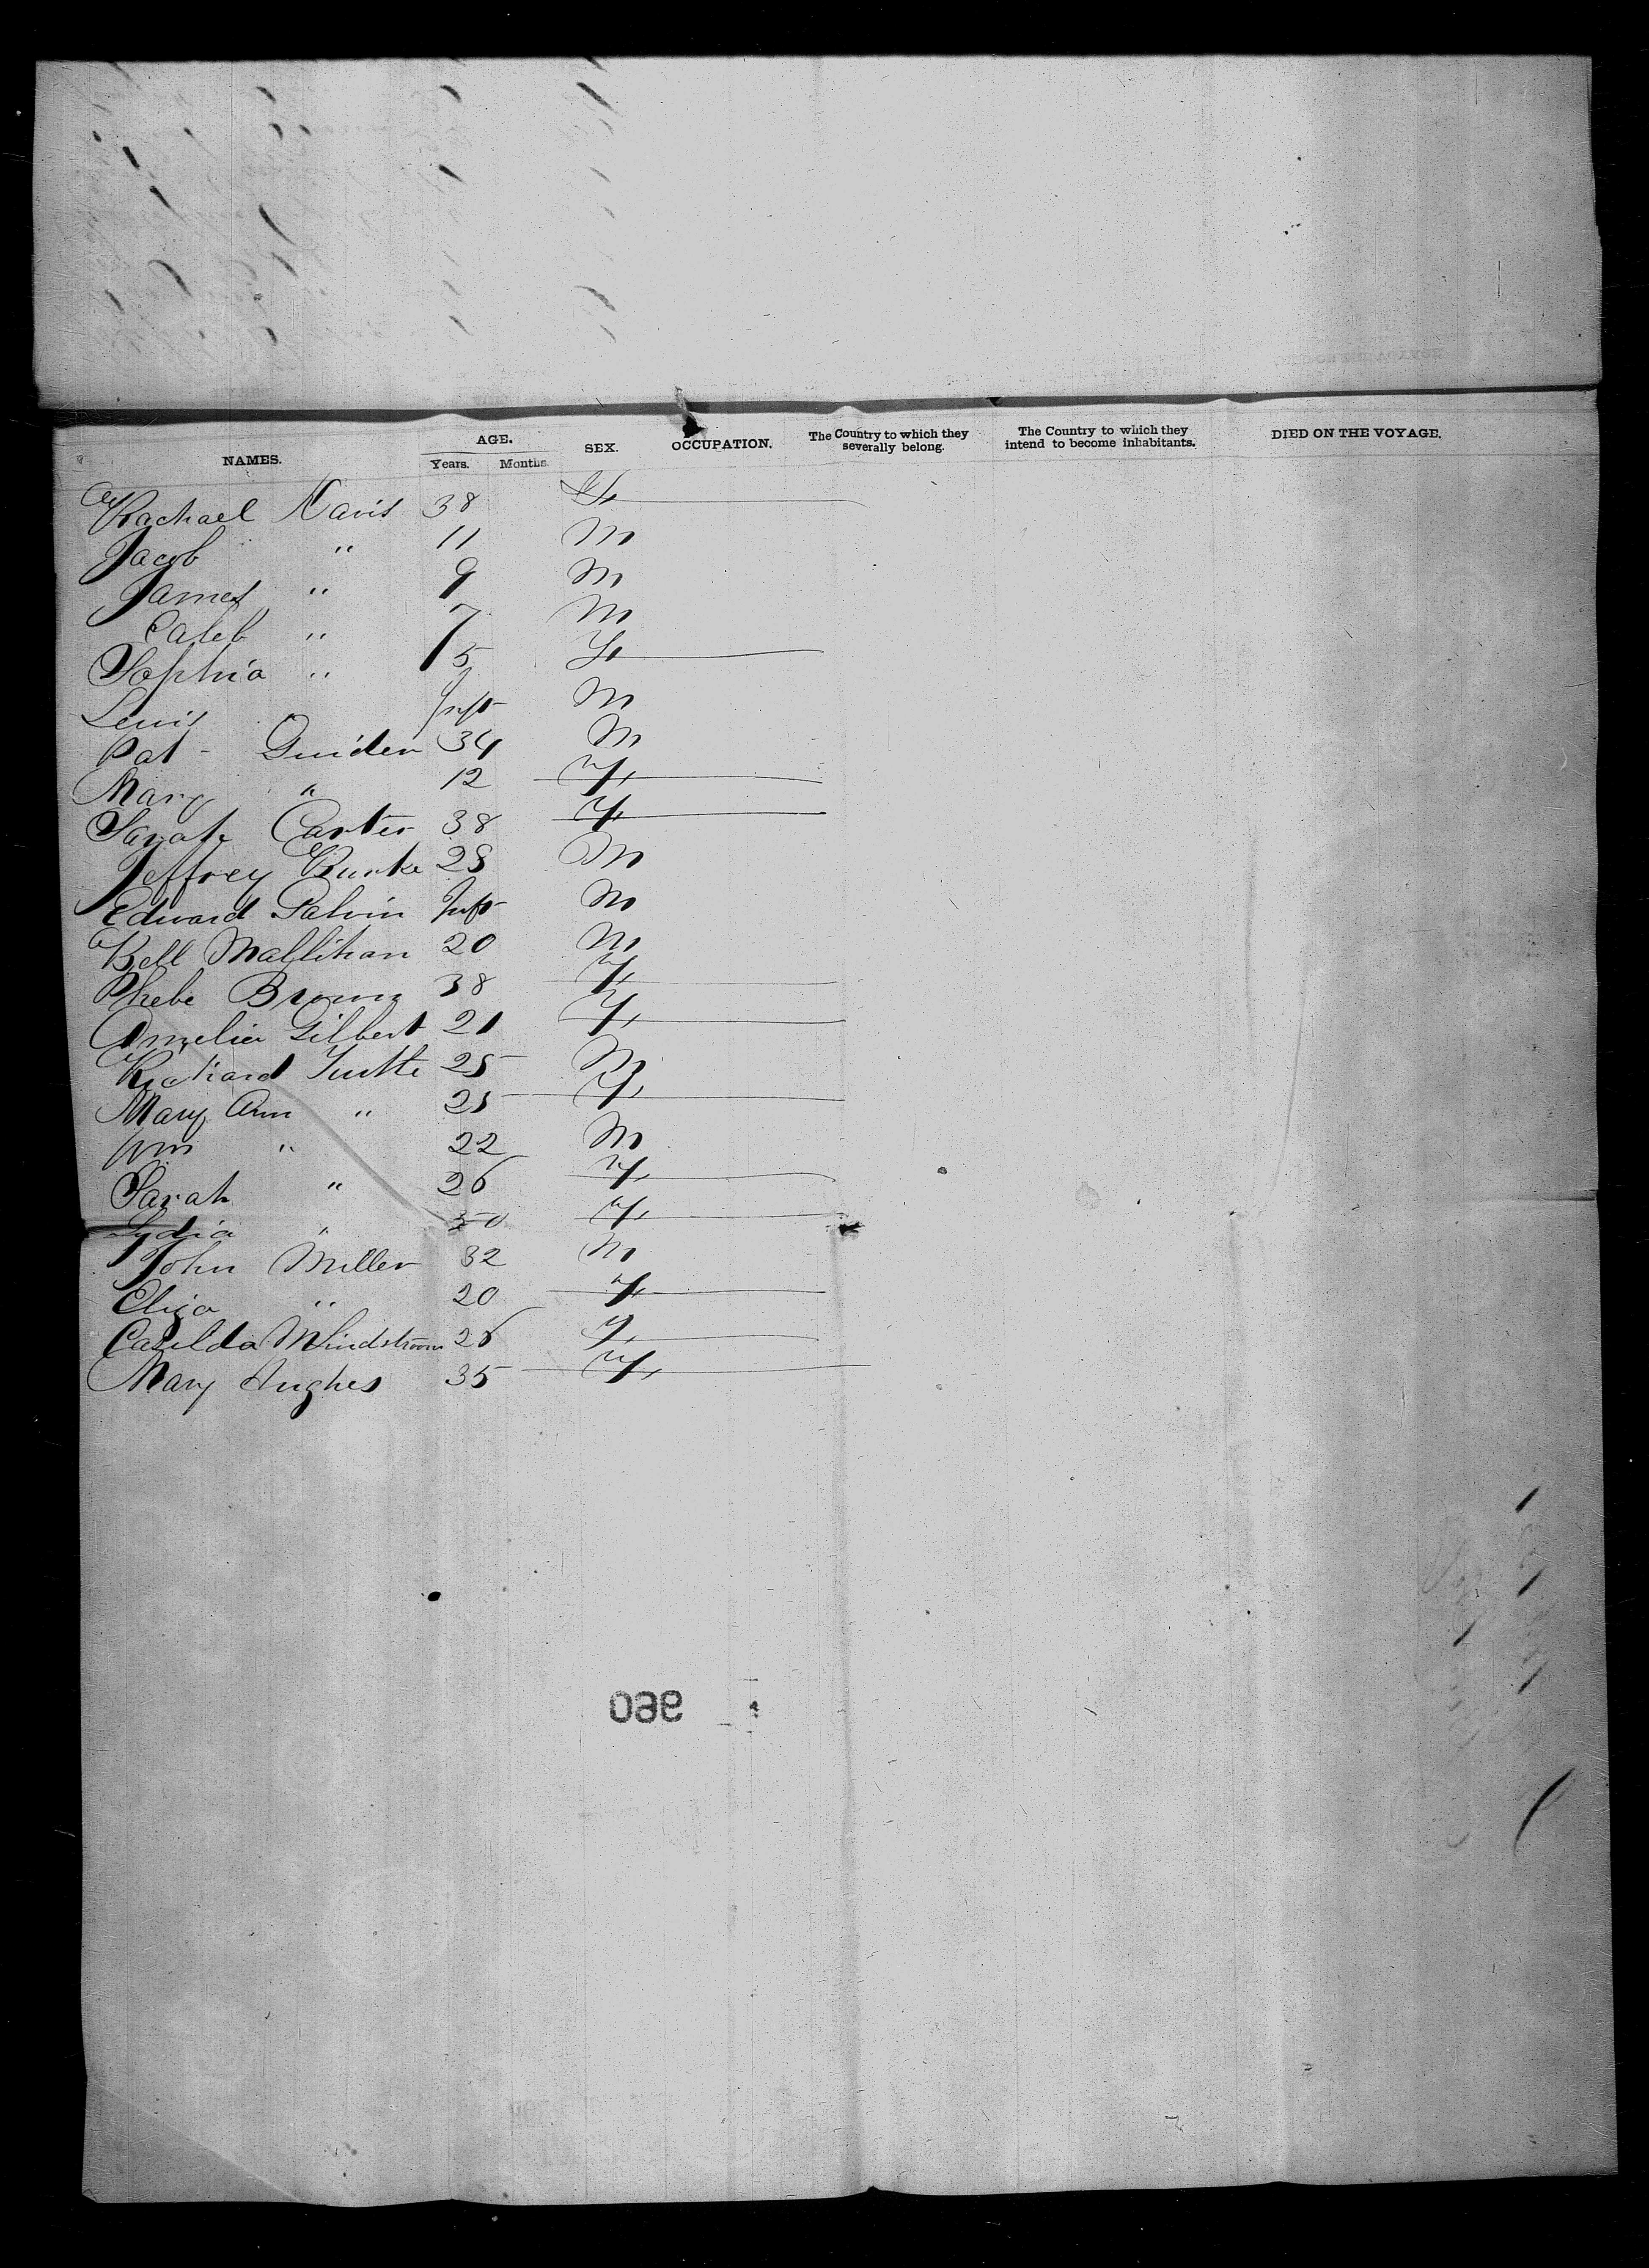 NAMES. AGE. SEX. OCCUPATION. The Country to which they severally belong. The Country to which they intend to become inhabitants. DIED ON THE VOYAGE.
Years. Months.
Rachael Navis 38 F
Jacob " 11 M
James " 9 M
Caleb " 7 M
Sophia " 5 F
Lewis Inft M
Pat - Guiden 34 M
Mary " 12 F
Sarah Carter 38 F
Jeffrey Burke 28 M
Edward Galvin Inft M
Bell Mallihan 20 M
Phebe Brown 38 F
Amelia Gilbert 21 F
Richard 25 M
Mary Ann " 25 F
Wm " 22 M
Sarah " 26 F
Lydia " 50 F
John Miller 32 M
Eliza " 20 F
Casilda M Lindstroom 26 F
Mary Hughes 35 F